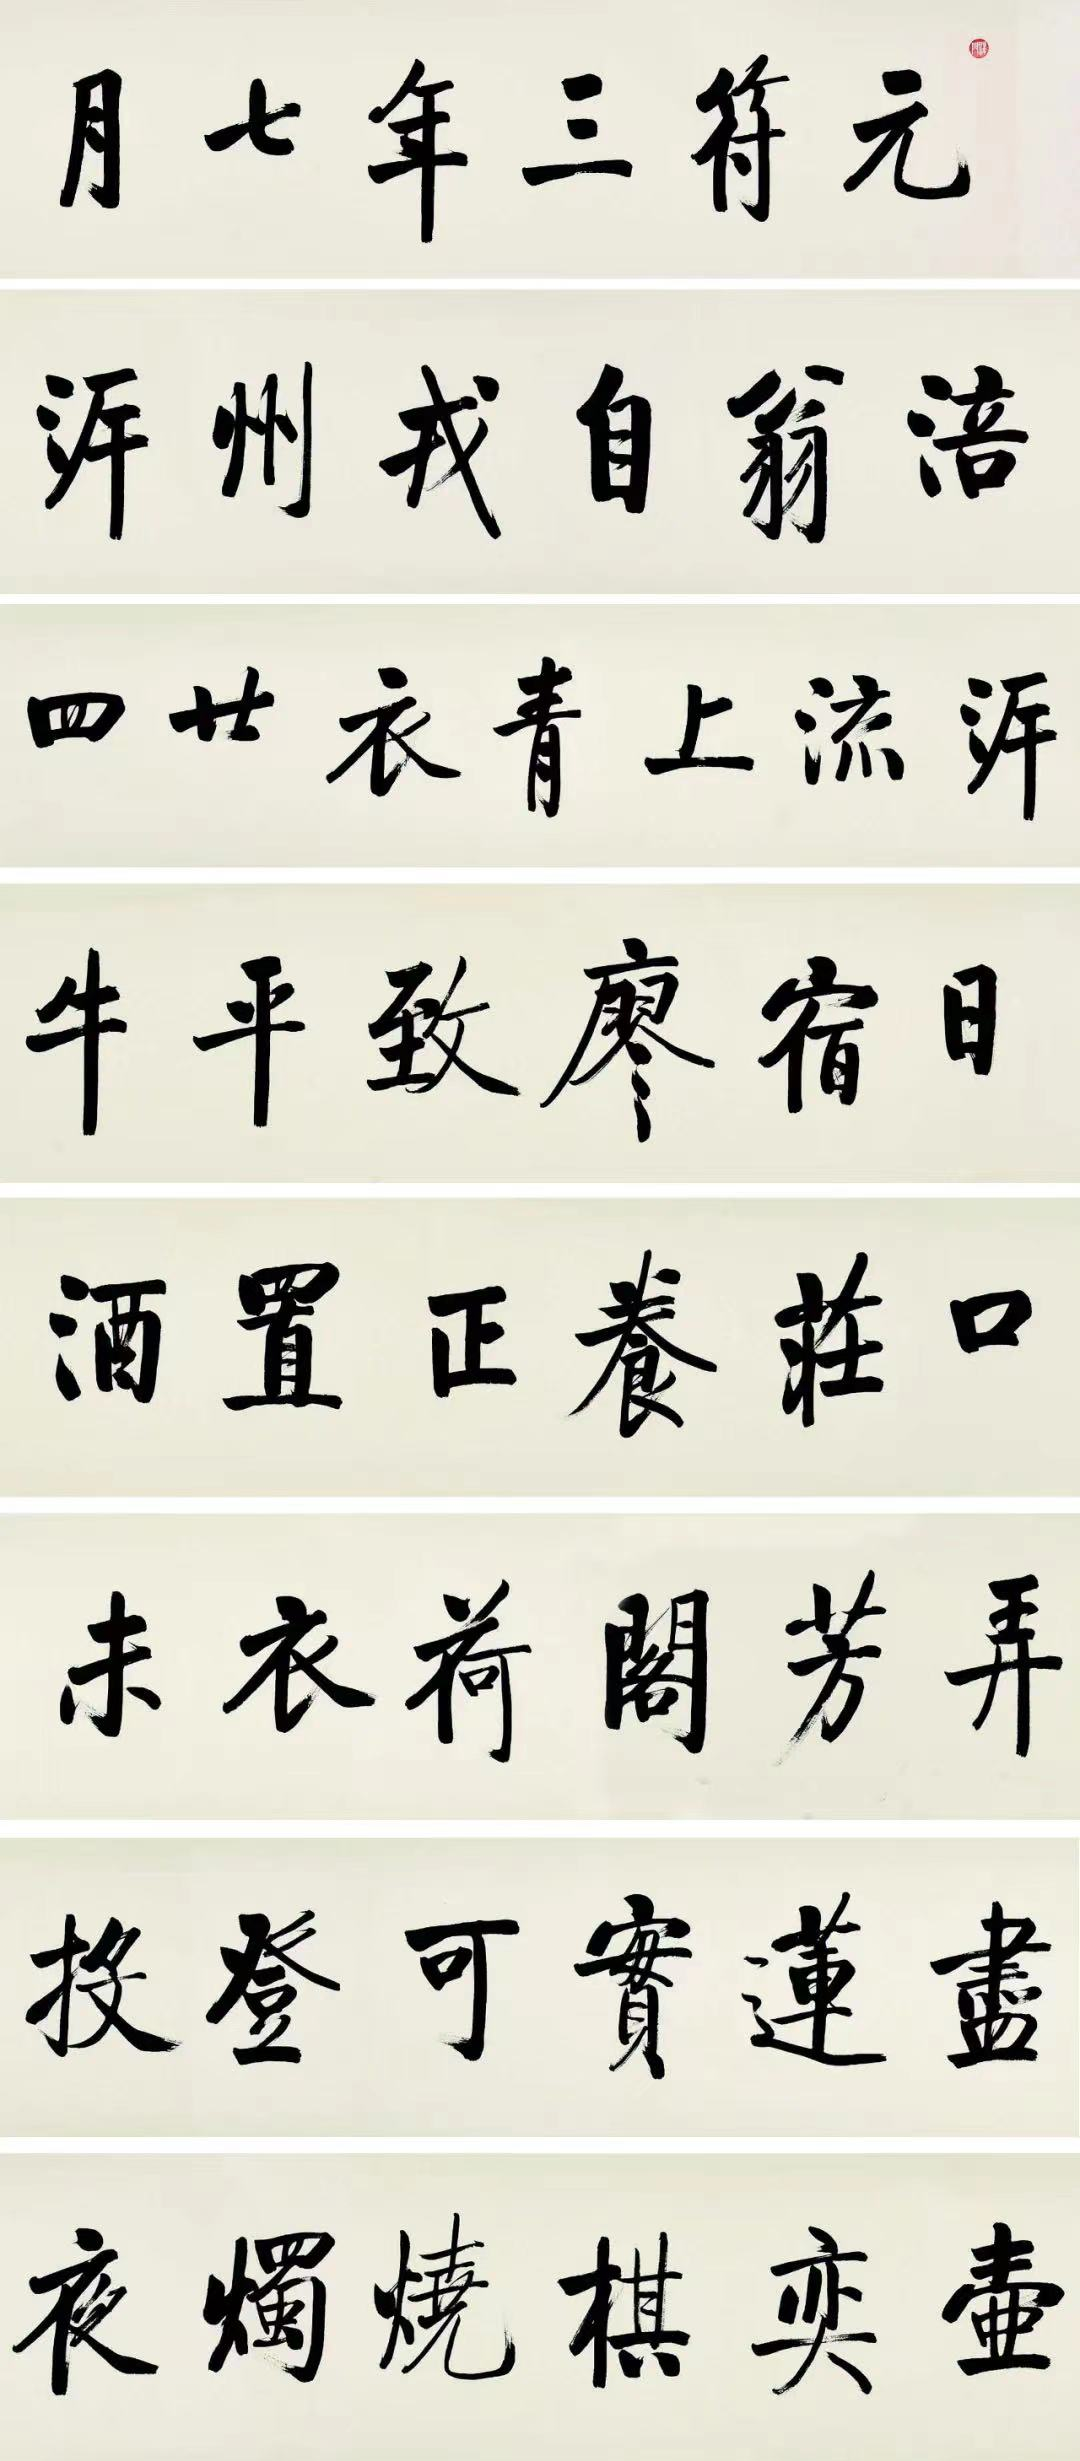 元符三年七月
涪翁自戎州泝
泝流上青衣廿四
日宿廖致平牛
口莊養正置酒
弄芳閣荷衣未
盡蓮實可登投
壺奕棋燒燭夜